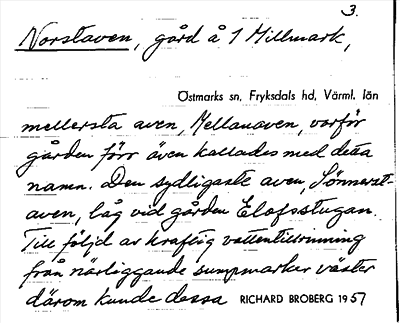 3.
Norstaven, gård å 1 Millmark,
Östmarks sn, Fryksdals hd, Värml. län
mellersta aven, Mellanaven, varför
gården förr även kallades med detta
namn. Den sydligaste aven, Sönnerst-
aven, låg vid gården Elofsstugan.
Till följd av kraftig vattentillrinning
från närliggande sumpmarker väster
därom kunde dessa RICHARD BROBERG 1957